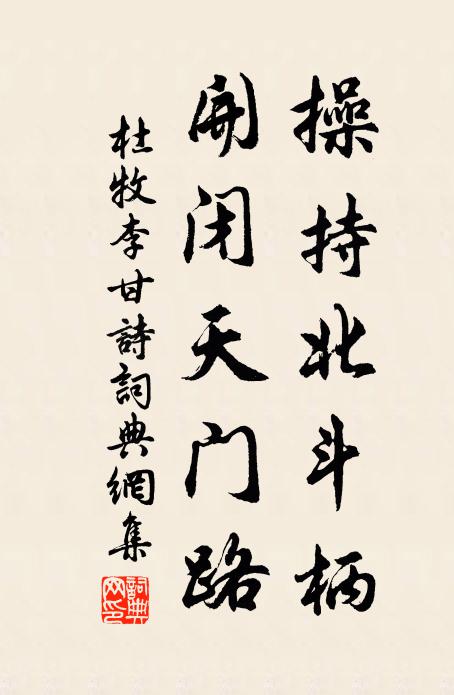 操持北斗柄
開闭天门路
杜牧李甘詩詞典網集
詞典网印